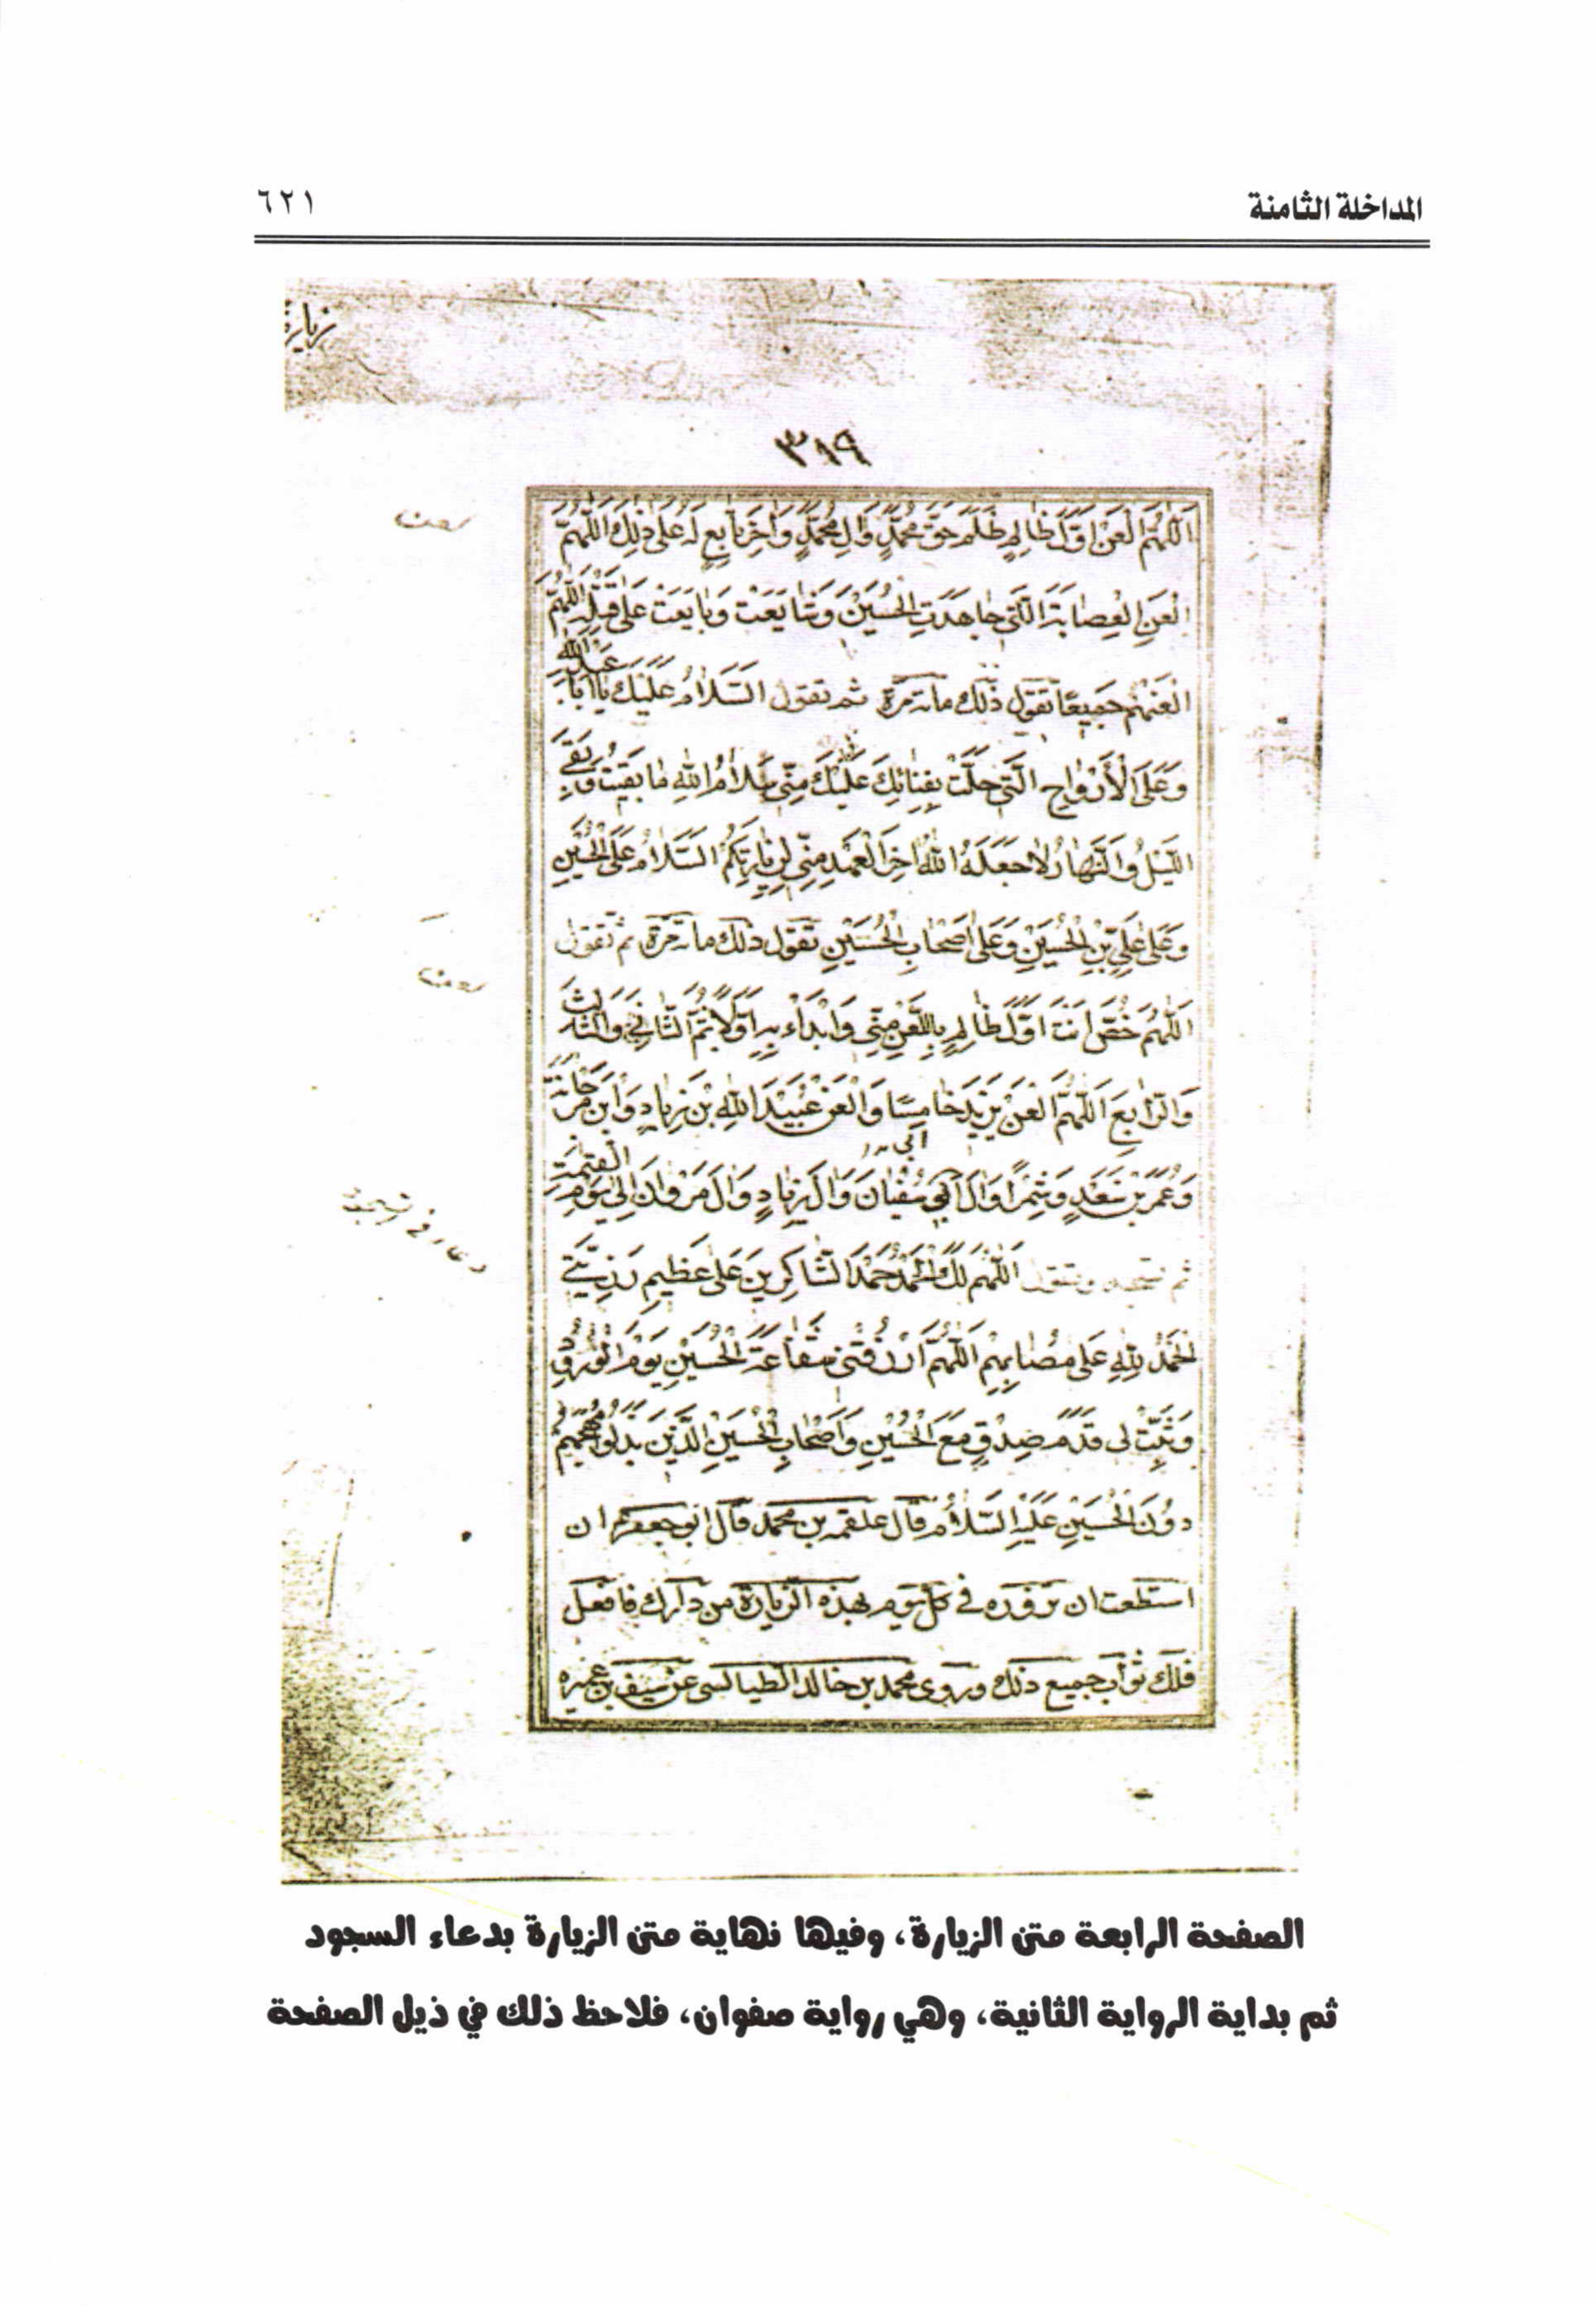 المداخلة الثامنة
٦٢١
زيارة
٣١٩
اَللّٰهُمَّ الْعَنْ اَوَّلَ ظالِمٍ ظَلَمَ حَقَّ مُحَمَّدٍ وَآلِ مُحَمَّدٍ وَاٰخِرَ تابِعٍ لَهُ عَلىٰ ذٰلِكَ اَللّٰهُمَّ
لعن
الْعَنِ الْعِصابَةَ الَّتي جاهَدَتِ الْحُسَيْنَ وَشايَعَتْ وَبايَعَتْ عَلىٰ قَتْلِهِ اَللّٰهُمَّ
الْعَنْهُمْ جَميعًا تقول ذلك مائة مرة ثم تقول اَلسَّلامُ عَلَيْكَ يا اَبا عَبْدِ اللهِ
وَعَلَى الْأَرْواحِ الَّتي حَلَّتْ بِفِنائِكَ عَلَيْكَ مِنّي سَلامُ اللهِ ما بَقيتُ وَبَقِيَ
اللَّيْلُ وَالنَّهارُ وَلا جَعَلَهُ اللهُ اٰخِرَ الْعَهْدِ مِنّي لِزِيارَتِكُمْ اَلسَّلامُ عَلَى الْحُسَيْنِ
وَعَلىٰ عَلِيِّ بْنِ الْحُسَيْنِ وَعَلىٰ اَصْحابِ الْحُسَيْنِ تقول ذلك مائة مرة ثم تقول
لعن
اَللّٰهُمَّ خُصَّ اَنْتَ اَوَّلَ ظالِمٍ بِاللَّعْنِ مِنّي وَابْدَأْ بِهِ اَوَّلًا ثُمَّ الثّانِيَ وَالثّالِثَ
وَالرّابِعَ اَللّٰهُمَّ الْعَنْ يَزيدَ خامِسًا وَالْعَنْ عُبَيْدَ اللهِ بْنَ زِيادٍ وَابْنَ مَرْجانَةَ
وَعُمَرَ بْنَ سَعْدٍ وَشِمْرًا وَآلَ اَبي سُفْيانَ وَآلَ زِيادٍ وَآلَ مَرْوانَ اِلىٰ يَوْمِ الْقِيٰمَةِ
دعاء في سجده
ثم تسجد وتقول اَللّٰهُمَّ لَكَ الْحَمْدُ حَمْدَ الشّاكِرينَ عَلىٰ عَظيمِ رَزِيَّتي
الْحَمْدُ لِلّٰهِ عَلىٰ مُصابِهِمْ اَللّٰهُمَّ ارْزُقْني شَفاعَةَ الْحُسَيْنِ يَوْمَ الْوُرُودِ
وَثَبِّتْ لي قَدَمَ صِدْقٍ مَعَ الْحُسَيْنِ وَاَصْحابِ الْحُسَيْنِ الَّذينَ بَذَلُوا مُهَجَهُمْ
دُونَ الْحُسَيْنِ عَلَيْهِ السَّلامُ قال علقمه بن محمد قال ابو جعفر ان
استطعت ان تزوره في كل يوم بهذه الزيارة من دارك فافعل
فلك ثواب جميع ذلك وروى محمد بن خالد الطيالسي عن سيف بن عميره
الصفحة الرابعة متن الزيارة، وفيها نهاية متن الزيارة بدعاء السجود
ثم بداية الرواية الثانية، وهي رواية صفوان، فلاحظ ذلك في ذيل الصفحة